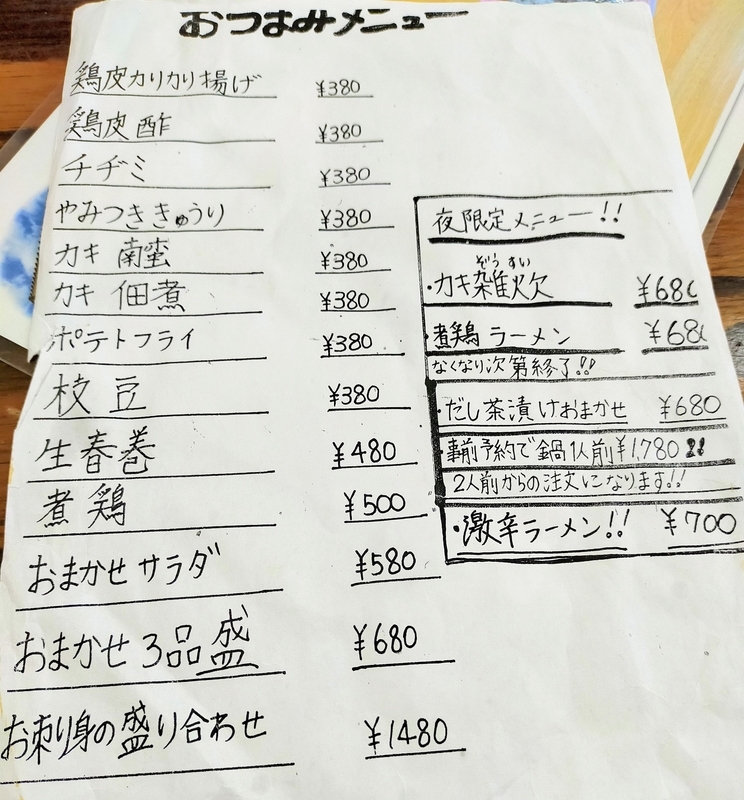 おつまみメニュー
鶏皮カリカリ揚げ ¥380
鶏皮酢 ¥380
チヂミ ¥380
やみつききゅうり ¥380
カキ南蛮 ¥380
カキ佃煮 ¥380
ポテトフライ ¥380
枝豆 ¥380
生春巻 ¥480
煮鶏 ¥500
おまかせサラダ ¥580
おまかせ3品盛 ¥680
お刺り身の盛り合わせ ¥1480
夜限定メニュー!!
ぞうすい
・カキ雑炊 ¥680
・煮鶏ラーメン ¥680
なくなり次第終了!!
・だし茶漬けおまかせ ¥680
・事前予約で鍋1人前¥1,780!!
2人前からの注文になります!!
・激辛ラーメン!! ¥700